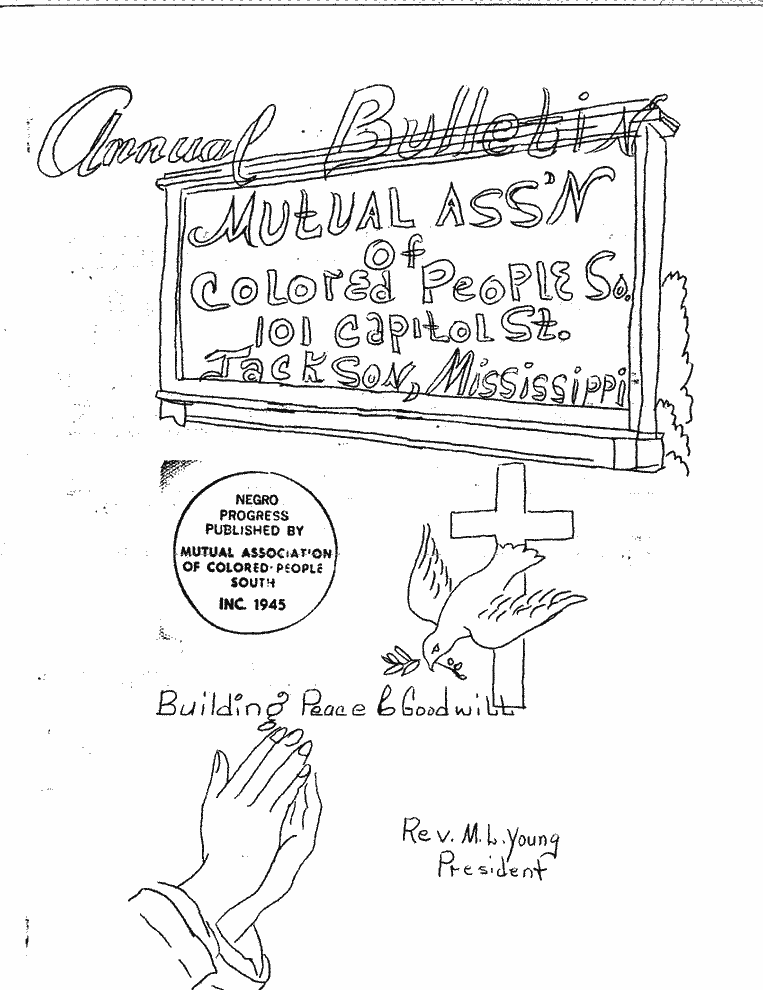 Annual Bulletin
MUTUAL ASS'N
Of
COLOREd PEOPLE So.
101 CapitOL St.
JACKSON, Mississippi
NEGRO
PROGRESS
PUBLISHED BY
MUTUAL ASSOCIATION
OF COLORED PEOPLE
SOUTH
INC. 1945
Building Peace & Goodwill
Rev. M. L. Young
President